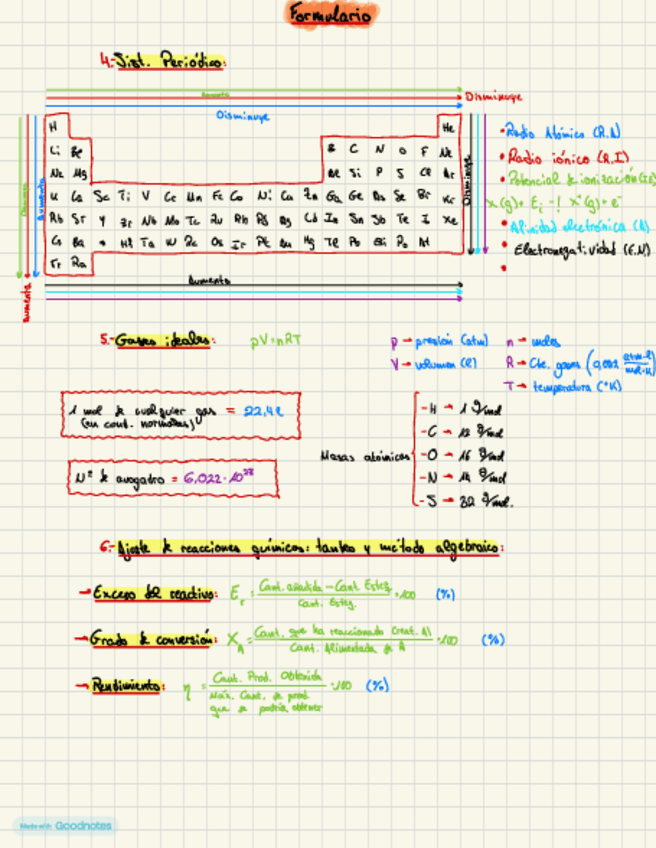 Formulario
4.- Sist. Periódico:
Aumenta
Disminuye
Disminuye
H He
Li Be B C N O F Ne
Na Mg Si P S Cl Ar
K Ca Sc Ti V Cr Mn Fe Co Ni Cu Zn Ga Ge As Se Br Kr
Rb Sr Y Zr Nb Mo Tc Ru Rh Pd Ag Cd In Sn Sb Te I Xe
Cs Ba * Hf Ta W Re Os Ir Pt Au Hg Tl Pb Bi Po At
Fr Ra
Disminuye
Aumenta
Aumenta
Disminuye
Aumenta
• Radio Atómico (R.A)
• Radio iónico (R.I)
• Potencial de ionización (EI)
X(g) + Ei → X⁺(g) + e⁻
• Afinidad electrónica (A)
• Electronegatividad (E.N)
•
5.- Gases ideales: pV=nRT
p → presión (atm) n → moles
V → volumen (l) R → Cte. gases (0,082 atm·l/mol·K)
T → temperatura (°K)
1 mol de cualquier gas = 22,4l
(en cond. normales)
Nº de avogadro = 6,022·10²³
Masas atómicas
-H → 1 g/mol
-C → 12 g/mol
-O → 16 g/mol
-N → 14 g/mol
-S → 32 g/mol.
6.- Ajuste de reacciones químicas: tanteo y método algebraico:
→ Exceso del reactivo: Er = Cant. añadida - Cant Esteq. / Cant. Esteq. ·100 (%)
→ Grado de conversión: XA = Cant. que ha reaccionado (react. A) / Cant. Alimentada de A ·100 (%)
→ Rendimiento: η = Cant. Prod. Obtenida / Máx. Cant. de prod. ·100 (%)
que se podría obtener
Made with Goodnotes